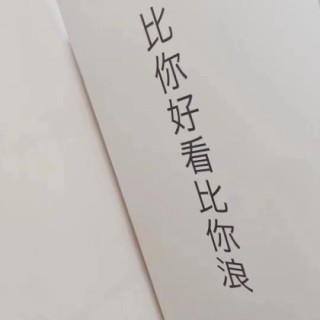 比你好看比你浪